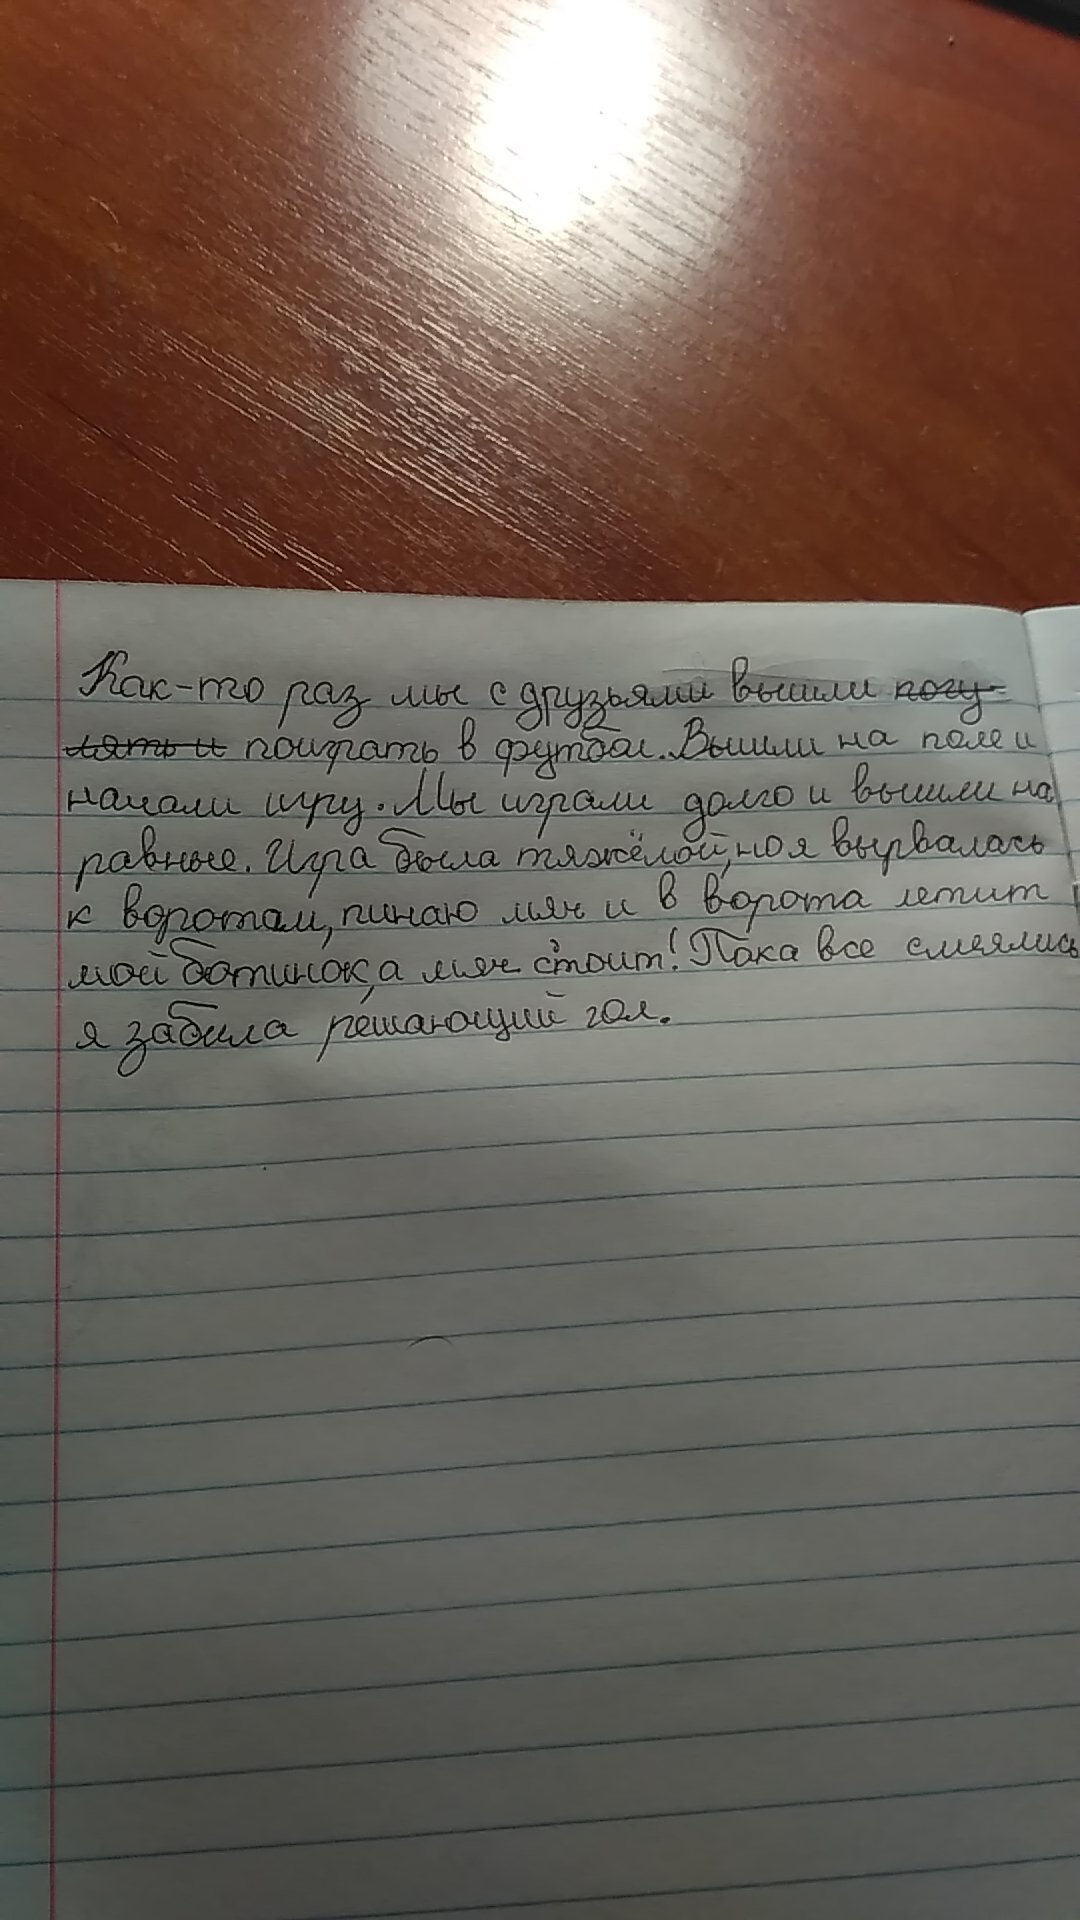 Как-то раз мы с друзьями вышли погу-
лять и поиграть в футбол. Вышли на поле и
начали игру. Мы играли долго и вышли на
равные. Игра была тяжёлой, но я вырвалась
к воротам, пинаю мяч и в ворота летит
мой ботинок, а мяч стоит! Пока все смеялись
я забила решающий гол.